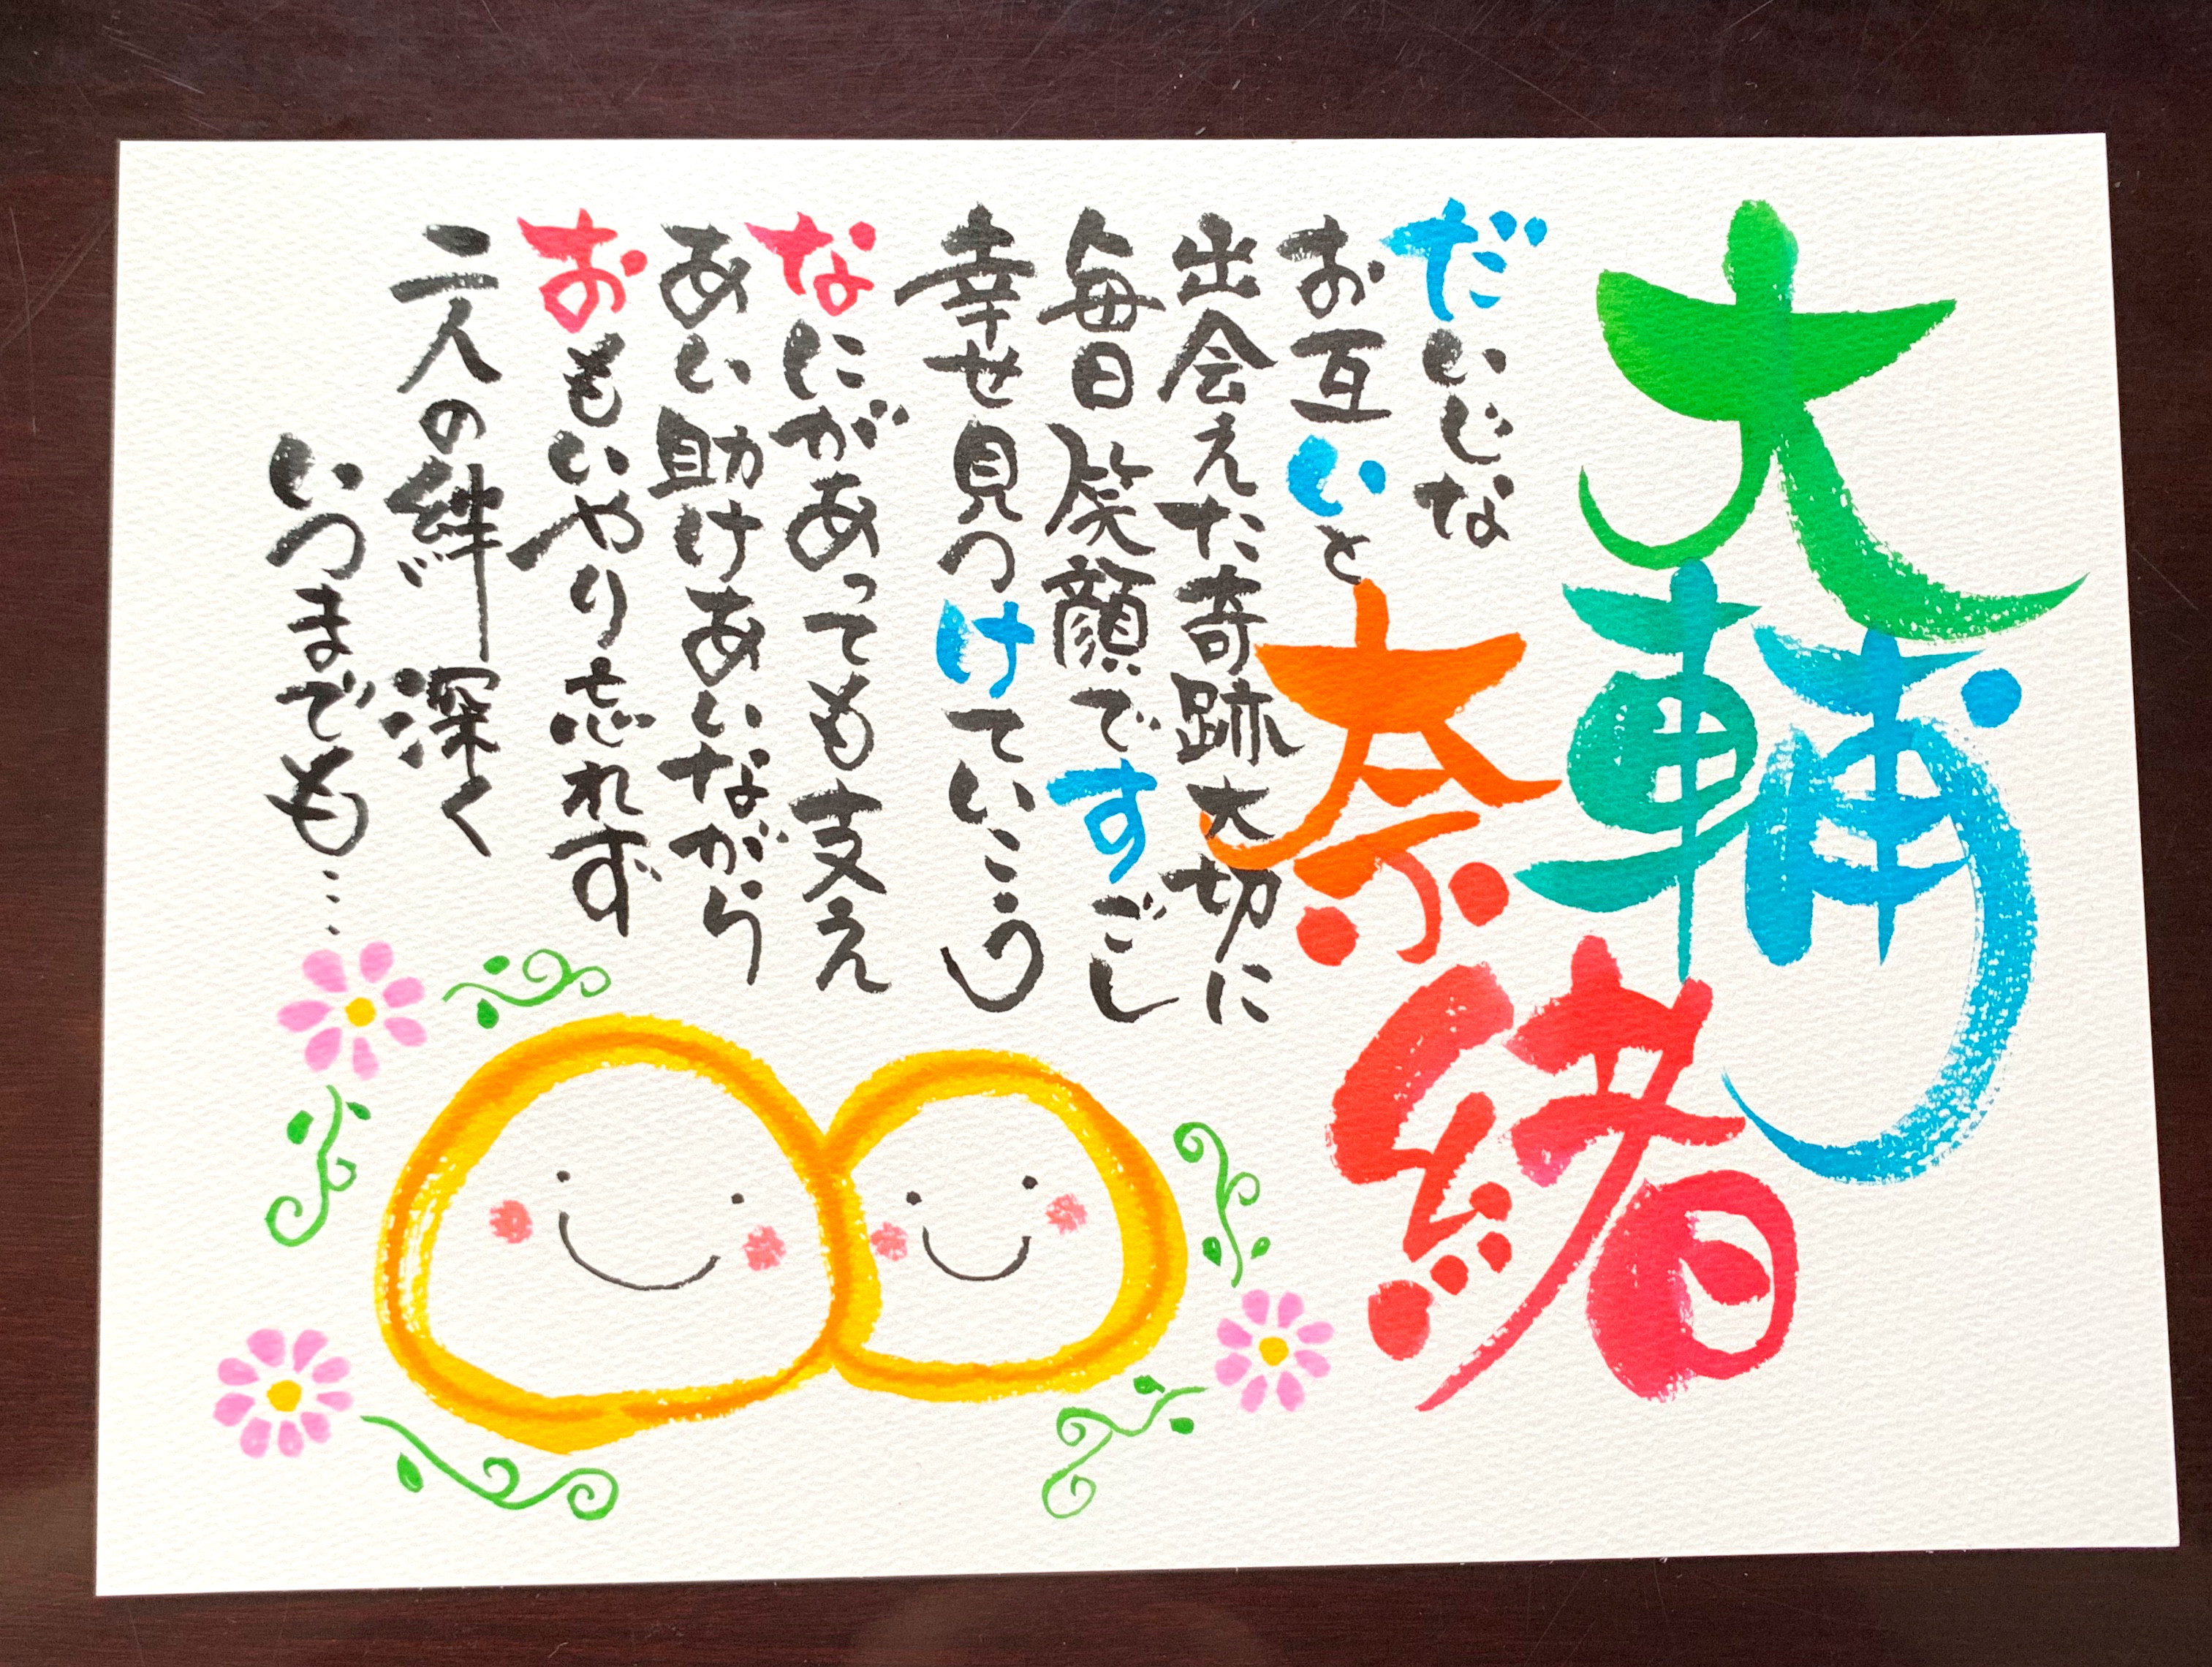 大輔
奈緒
だいじな
お互いと
出会えた奇跡大切に
毎日笑顔ですごし
幸せ見つけていこう
なにがあっても支え
あい助けあいながら
おもいやり忘れず
二人の絆深く
いつまでも…